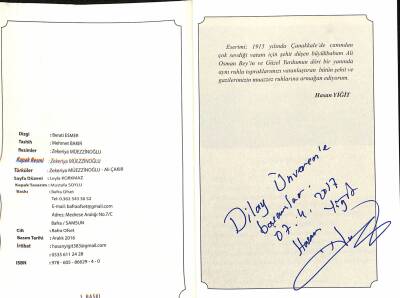 Dizgi : Berati ESMER
Tashih : Mehmet BAKIR
Resimler : Zekeriya MÜEZZİNOĞLU
Kapak Resmi : Zekeriya MÜEZZİNOĞLU
Türküler : Zekeriya MÜEZZİNOĞLU - Ali ÇAKIR
Sayfa Düzeni : Leyla KORKMAZ
Kapak Tasarım : Mustafa SOYLU
Baskı : Bafra Ofset
Tel:0.362 543 38 52
E-mail: bafraofset@gmail.com
Adres: Medrese Aralığı No:7/C
Bafra / SAMSUN
Cilt : Bafra Ofset
Basım Tarihi : Aralık 2016
İrtibat : hasanyigit383@gmail.com
: 0535 611 24 28
ISBN : 978 - 605 - 66629 - 4 - 0
2. BASKI
Eserimi; 1915 yılında Çanakkale'de canından
çok sevdiği vatanı için şehit düşen büyükbabam Ali
Osman Bey'in ve Güzel Yurdumun dört bir yanında
aynı ruhla topraklarımızı vatanlaştıran bütün şehit ve
gazilerimizin muazzez ruhlarına armağan ediyorum.
Hasan YİĞİT
Dilay Ünveren'e
başarılar.
07.4.2017
Hasan Yiğit